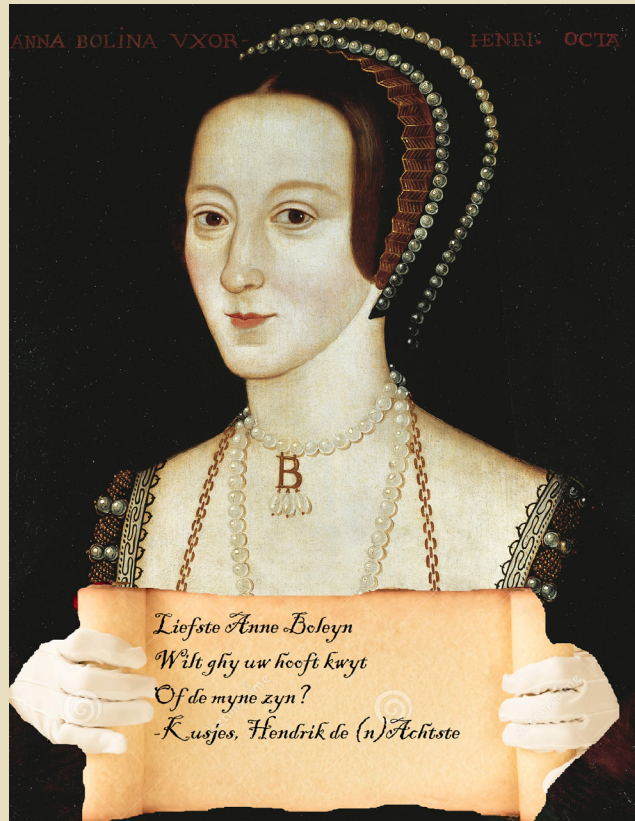 ANNA BOLINA VXOR- HENRI- OCTA
B
Liefste Anne Boleyn
Wilt ghy uw hooft kwyt
Of de myne zyn?
-Kusjes, Hendrik de (n)Achtste